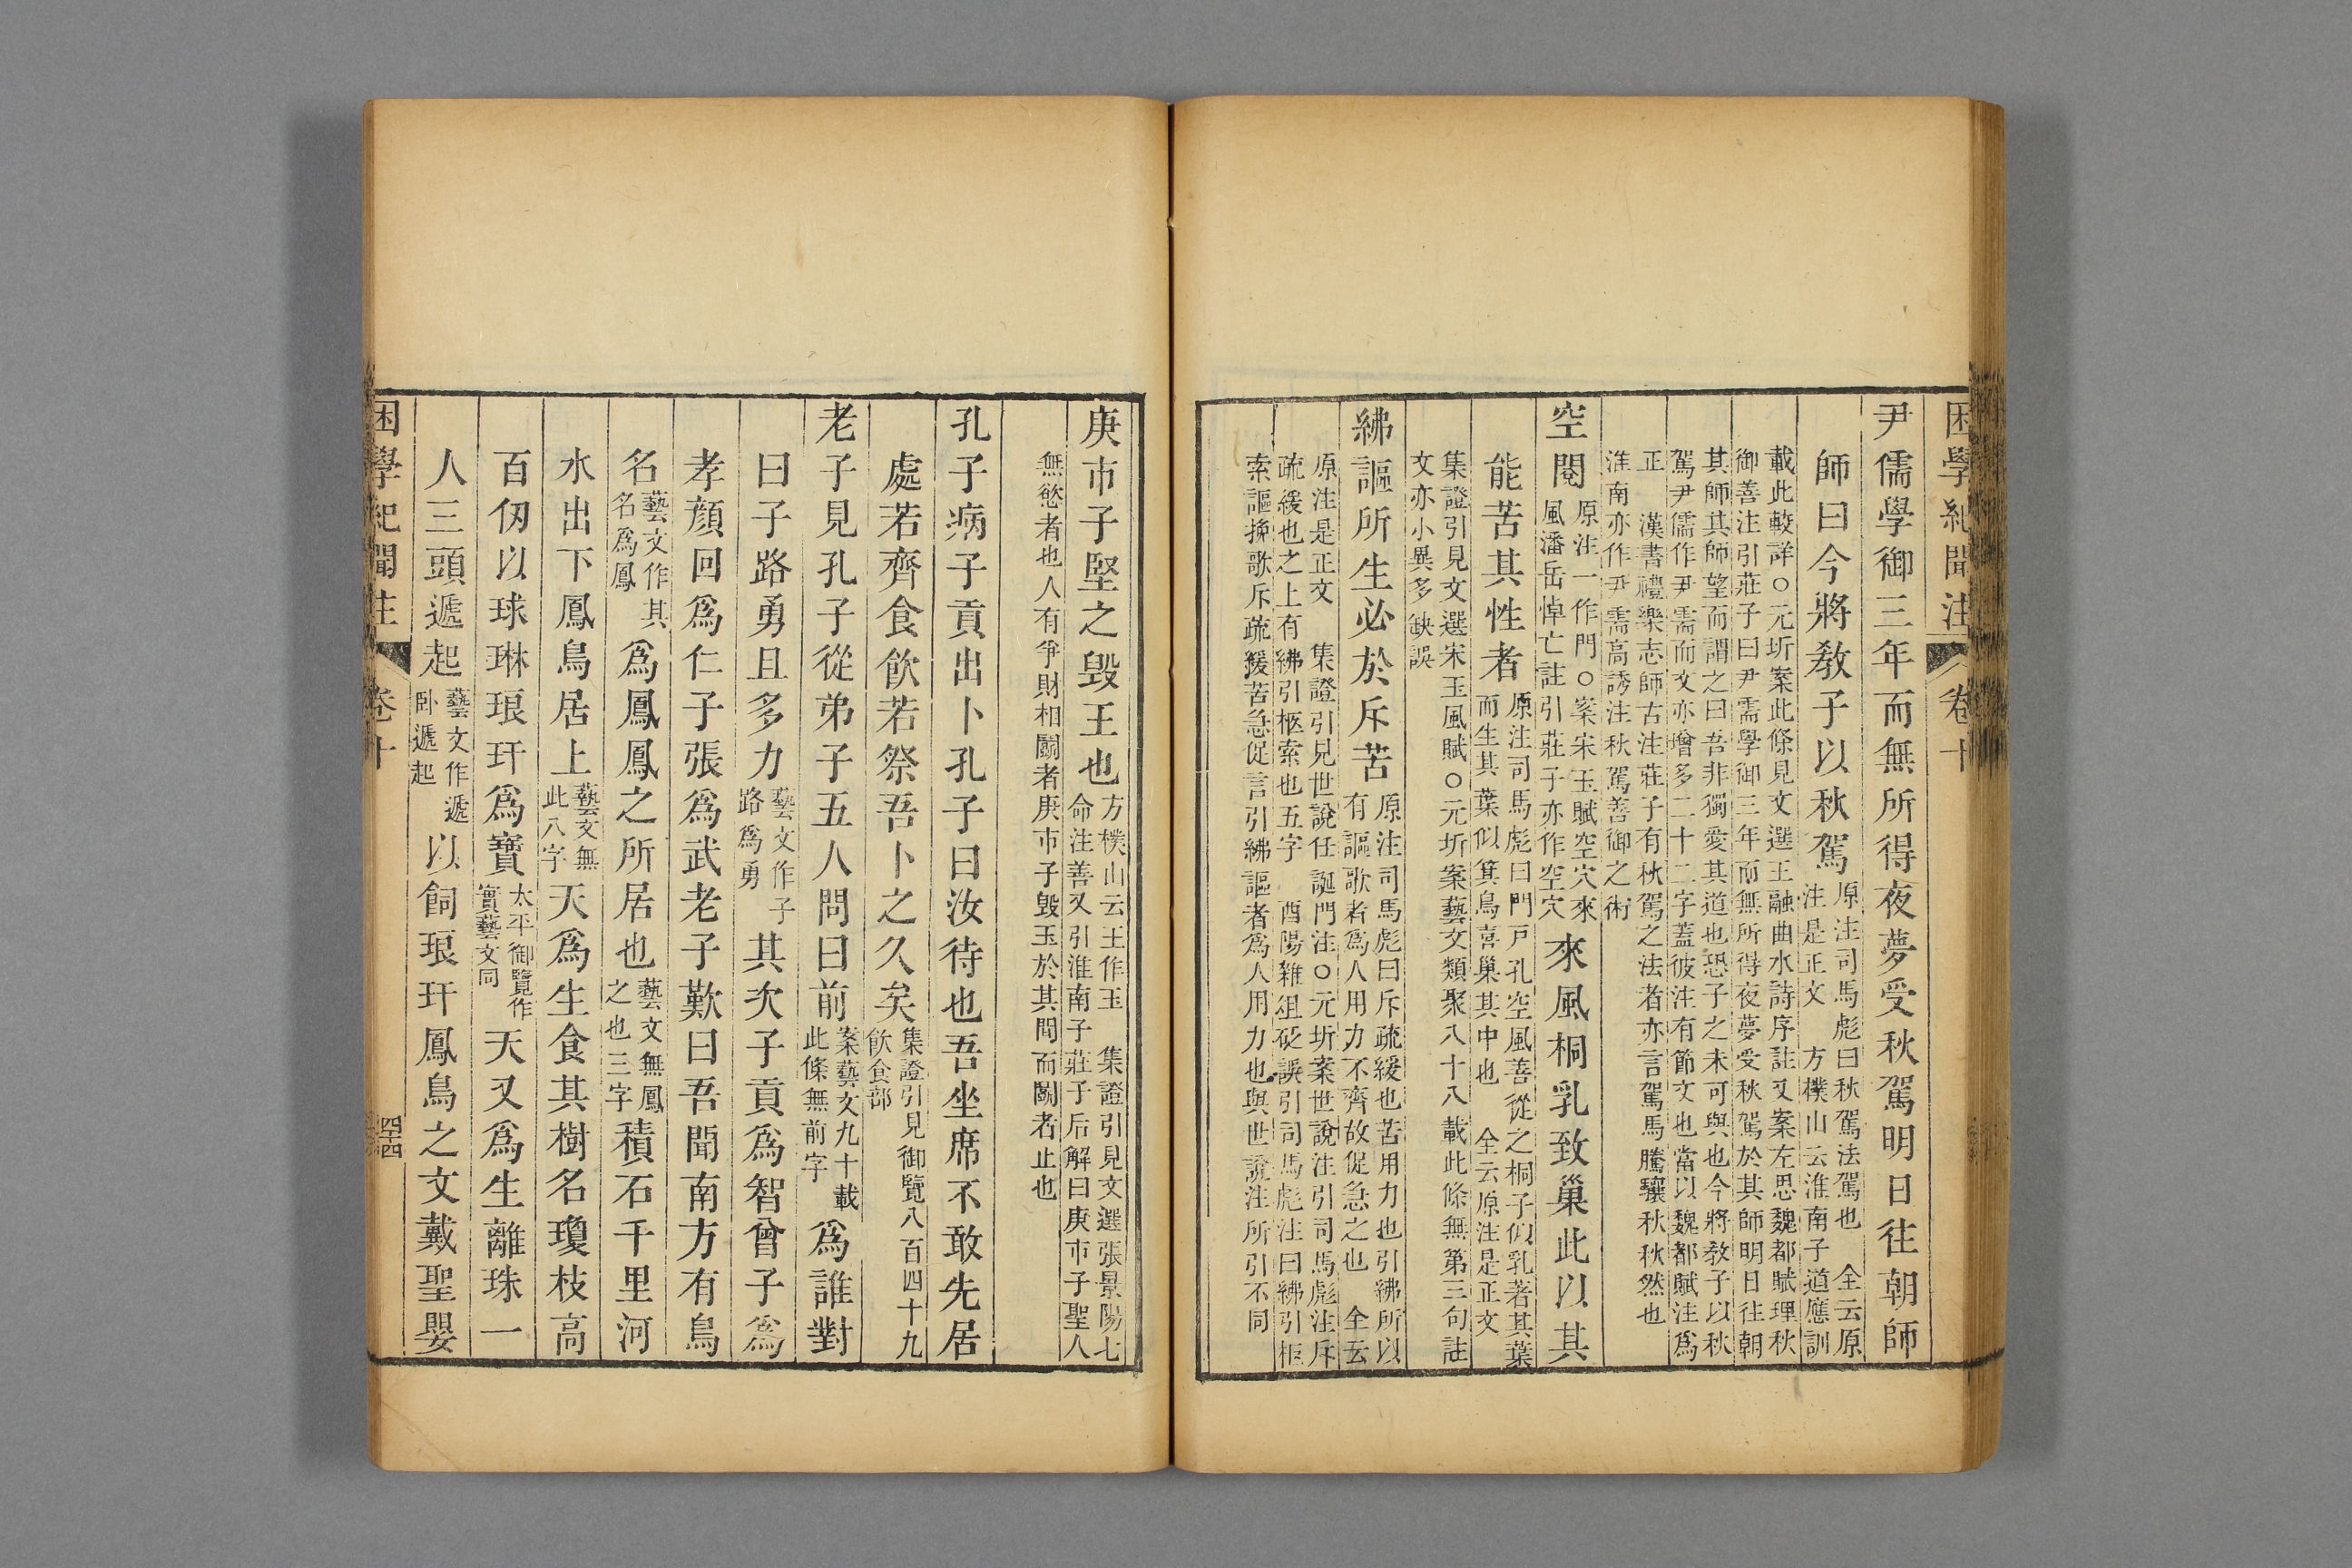 困學紀聞注 卷十
尹儒學御三年而無所得夜夢受秋駕明日往朝師
師曰今將敎子以秋駕原注司馬彪曰秋駕法駕也 全云原
注是正文 方樸山云淮南子道應訓
載此較詳○元圻案此條見文選王融曲水詩序註又案左思魏都賦理秋
御善注引莊子曰尹需學御三年而無所得夜夢受秋駕於其師明日往朝
其師其師望而謂之曰吾非獨愛其道也恐子之未可與也今將敎子以秋
駕尹儒作尹需而文亦增多二十二字蓋彼注有節文也當以魏都賦注爲
正 漢書禮樂志師古注莊子有秋駕之法者亦言駕馬騰驤秋秋然也
淮南亦作尹需高誘注秋駕善御之術
空閱原注一作門○案宋玉賦空穴來
風潘岳悼亡註引莊子亦作空穴來風桐乳致巢此以其
能苦其性者原注司馬彪曰門戸孔空風善從之桐子似乳著其葉
而生其葉似箕鳥喜巢其中也 全云原注是正文
集證引見文選宋玉風賦○元圻案藝文類聚八十八載此條無第三句註
文亦小異多缺誤
紼謳所生必於斥苦原注司馬彪曰斥疏緩也苦用力也引紼所以
有謳歌者爲人用力不齊故促急之也 全云
原注是正文 集證引見世說任誕門注○元圻案世說注引司馬彪注斥
疏緩也之上有紼引柩索也五字 酉陽雜俎砭誤引司馬彪注曰紼引柩
索謳挽歌斥疏緩苦急促言引紼謳者爲人用力也與世說注所引不同
庚市子堅之毀王也方樸山云王作玉 集證引見文選張景陽七
命注善又引淮南子莊子后解曰庚市子聖人
無慾者也人有爭財相鬭者庚市子毀玉於其間而鬭者止也
孔子病子貢出卜孔子曰汝待也吾坐席不敢先居
處若齊食飲若祭吾卜之久矣集證引見御覽八百四十九
飲食部
老子見孔子從弟子五人問曰前案藝文九十載
此條無前字爲誰對
曰子路勇且多力藝文作子
路爲勇其次子貢爲智曾子爲
孝顏回爲仁子張爲武老子歎曰吾聞南方有鳥
名藝文作其
名爲鳳爲鳳鳳之所居也藝文無鳳
之也三字積石千里河
水出下鳳鳥居上藝文無
此八字天爲生食其樹名瓊枝高
百仞以球琳琅玕爲寶太平御覽作
實藝文同天又爲生離珠一
人三頭遞起藝文作遞
卧遞起以飼琅玕鳳鳥之文戴聖嬰
困學紀聞注 卷十